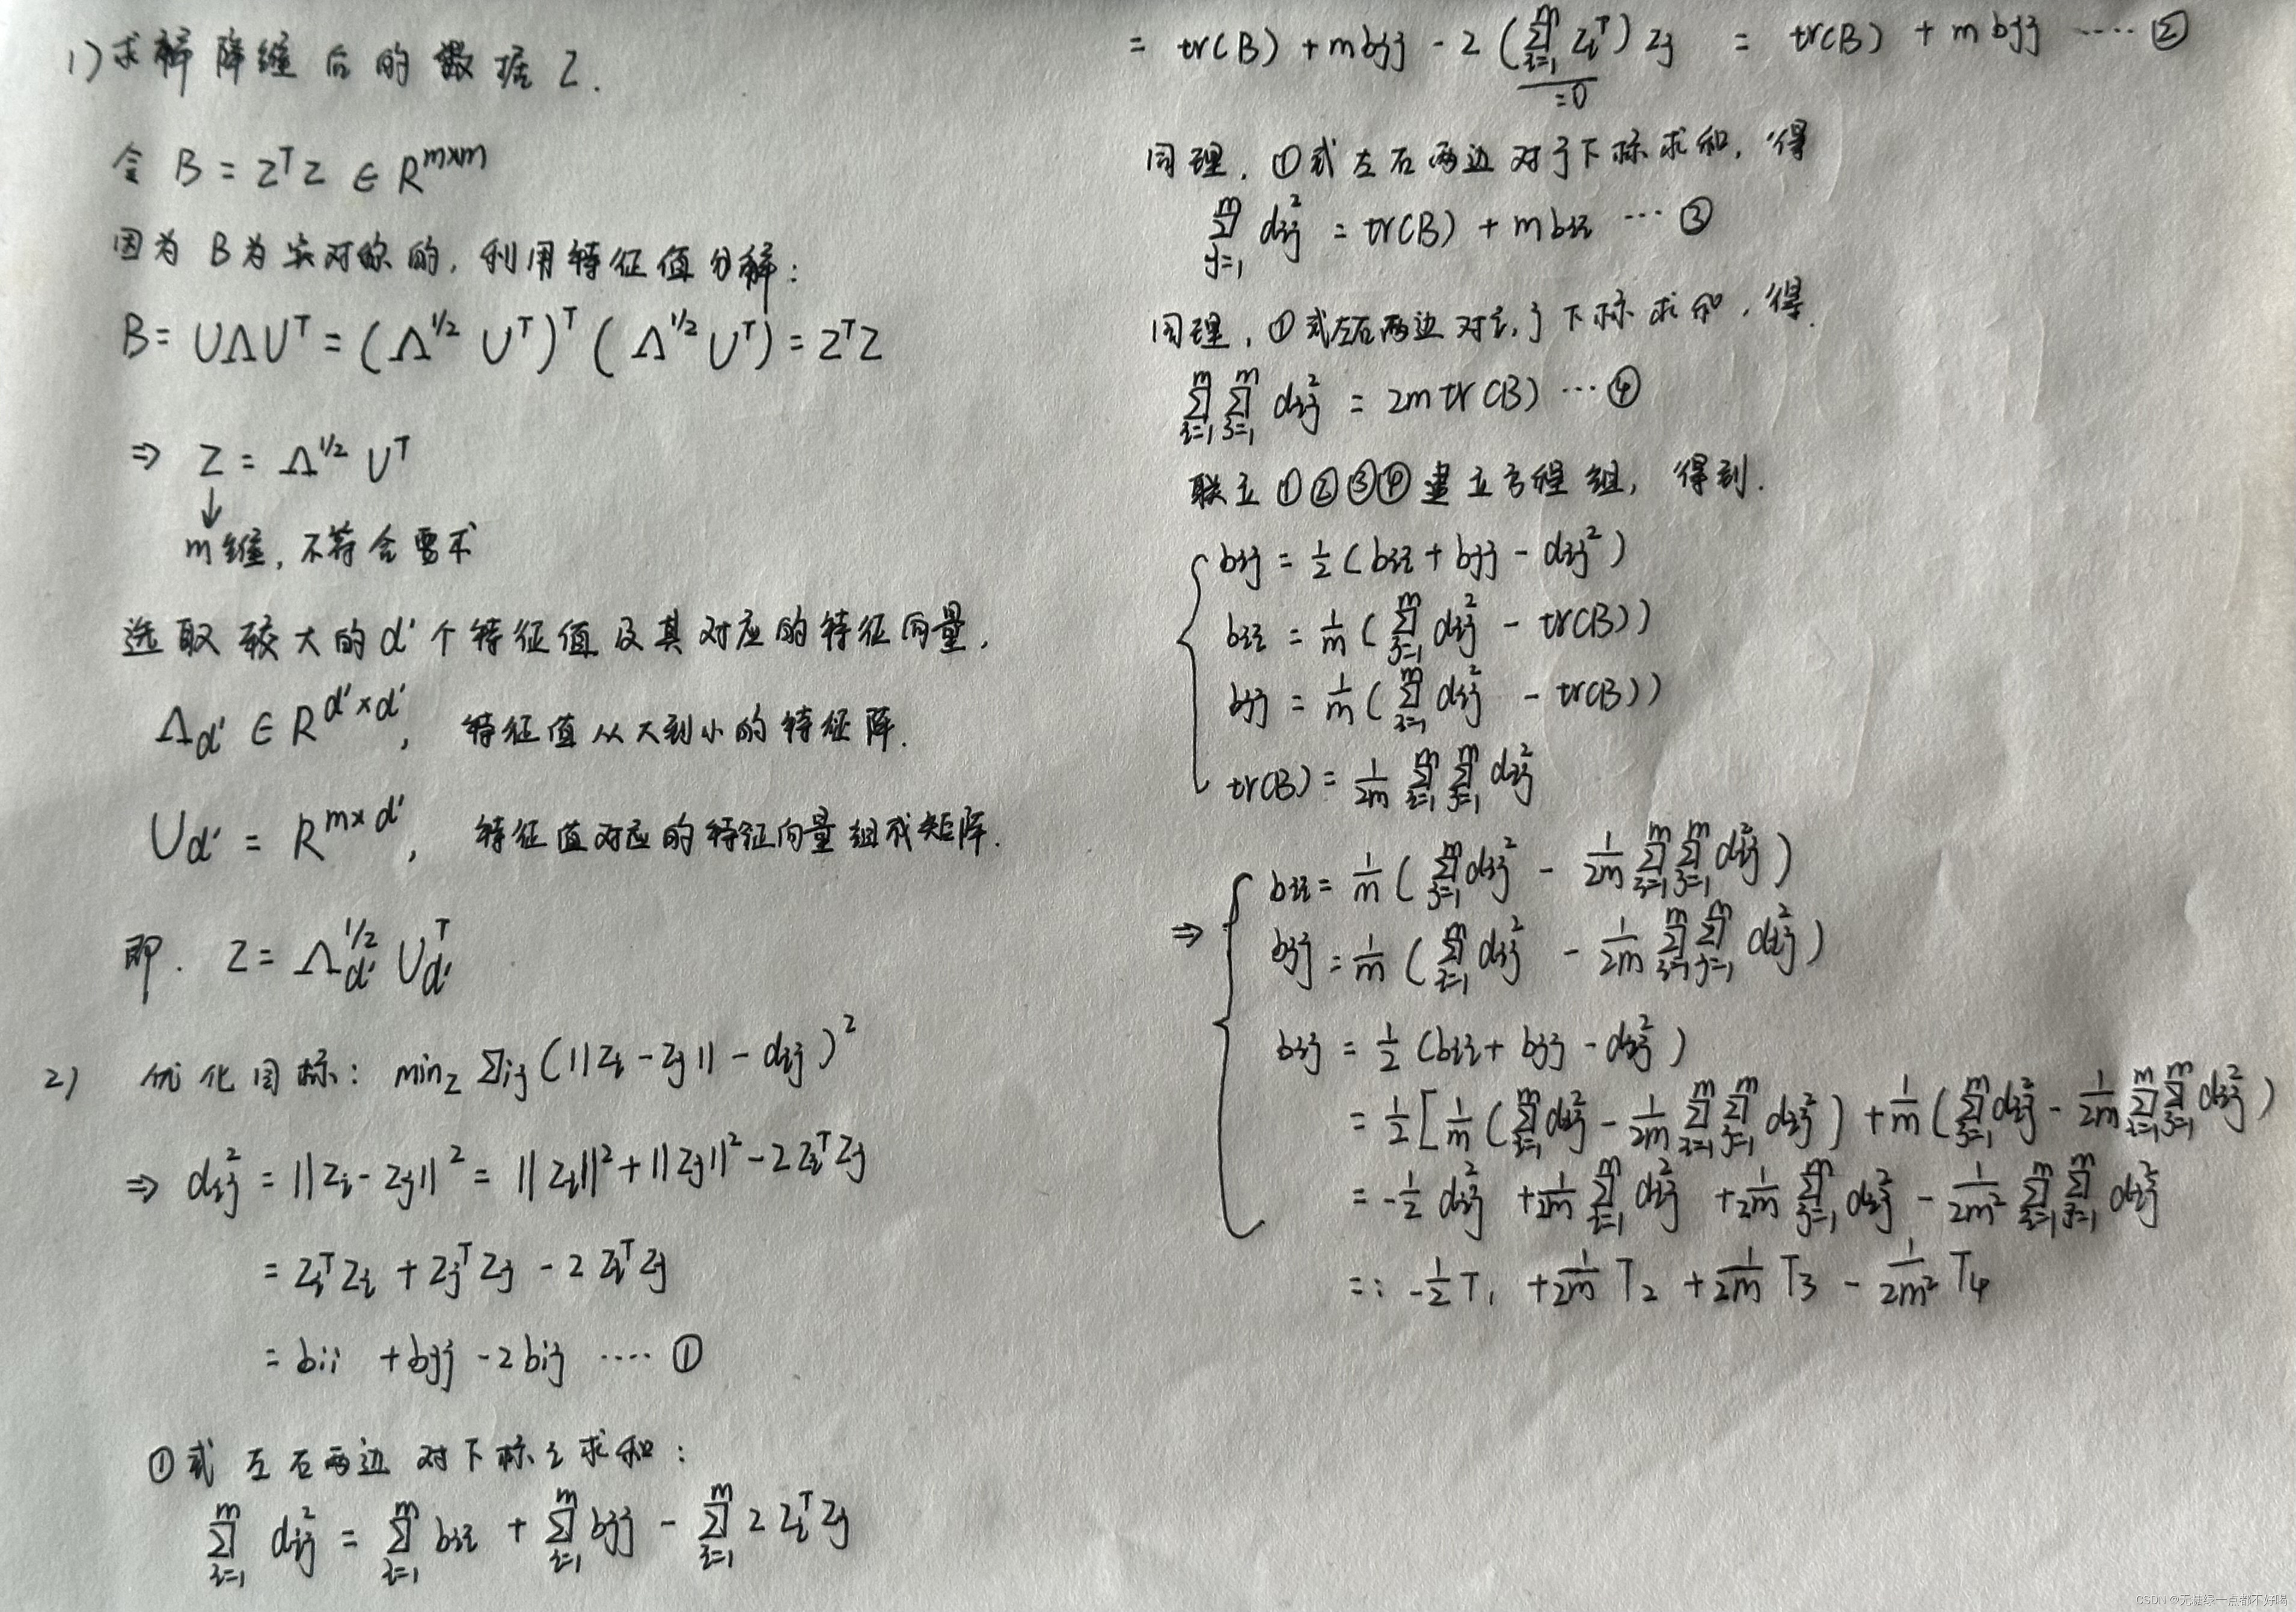 1) 求解降维后的数据 Z.
令 B = Z^T Z ∈ R^{m×m}
因为 B 为实对称的, 利用特征值分解:
B = UΛU^T = (Λ^{1/2} U^T)^T (Λ^{1/2} U^T) = Z^T Z
⇒ Z = Λ^{1/2} U^T
↓
m维, 不符合要求
选取较大的 d' 个特征值及其对应的特征向量.
Λ_{d'} ∈ R^{d'×d'}, 特征值从大到小的特征阵.
U_{d'} = R^{m×d'}, 特征值对应的特征向量组成矩阵.
即. Z = Λ_{d'}^{1/2} U_{d'}^T
2) 优化目标: min_Z Σ_{ij} (||z_i - z_j|| - d_{ij})^2
⇒ d_{ij}^2 = ||z_i - z_j||^2 = ||z_i||^2 + ||z_j||^2 - 2 z_i^T z_j
= z_i^T z_i + z_j^T z_j - 2 z_i^T z_j
= b_{ii} + b_{jj} - 2 b_{ij} ···· ①
①式左右两边对下标 i 求和:
Σ_{i=1}^m d_{ij}^2 = Σ_{i=1}^m b_{ii} + Σ_{i=1}^m b_{jj} - Σ_{i=1}^m 2 z_i^T z_j
= tr(B) + m b_{jj} - 2 (Σ_{i=1}^m z_i^T) z_j = tr(B) + m b_{jj} ···· ②
=0
同理, ①式左右两边对 j 下标求和, 得
Σ_{j=1}^m d_{ij}^2 = tr(B) + m b_{ii} ··· ③
同理, ①式左右两边对 i, j 下标求和, 得.
Σ_{i=1}^m Σ_{j=1}^m d_{ij}^2 = 2m tr(B) ··· ④
联立①②③④建立方程组, 得到.
b_{ij} = 1/2 (b_{ii} + b_{jj} - d_{ij}^2)
b_{ii} = 1/m (Σ_{j=1}^m d_{ij}^2 - tr(B))
b_{jj} = 1/m (Σ_{i=1}^m d_{ij}^2 - tr(B))
tr(B) = 1/2m Σ_{i=1}^m Σ_{j=1}^m d_{ij}^2
⇒ b_{ii} = 1/m (Σ_{j=1}^m d_{ij}^2 - 1/2m Σ_{i=1}^m Σ_{j=1}^m d_{ij}^2)
b_{jj} = 1/m (Σ_{i=1}^m d_{ij}^2 - 1/2m Σ_{i=1}^m Σ_{j=1}^m d_{ij}^2)
b_{ij} = 1/2 (b_{ii} + b_{jj} - d_{ij}^2)
= 1/2 [1/m (Σ_{i=1}^m d_{ij}^2 - 1/2m Σ_{i=1}^m Σ_{j=1}^m d_{ij}^2) + 1/m (Σ_{j=1}^m d_{ij}^2 - 1/2m Σ_{i=1}^m Σ_{j=1}^m d_{ij}^2)
= -1/2 d_{ij}^2 + 1/2m Σ_{i=1}^m d_{ij}^2 + 1/2m Σ_{j=1}^m d_{ij}^2 - 1/2m^2 Σ_{i=1}^m Σ_{j=1}^m d_{ij}^2
=: -1/2 T_1 + 1/2m T_2 + 1/2m T_3 - 1/2m^2 T_4
CSDN @无糖绿一点都不好喝